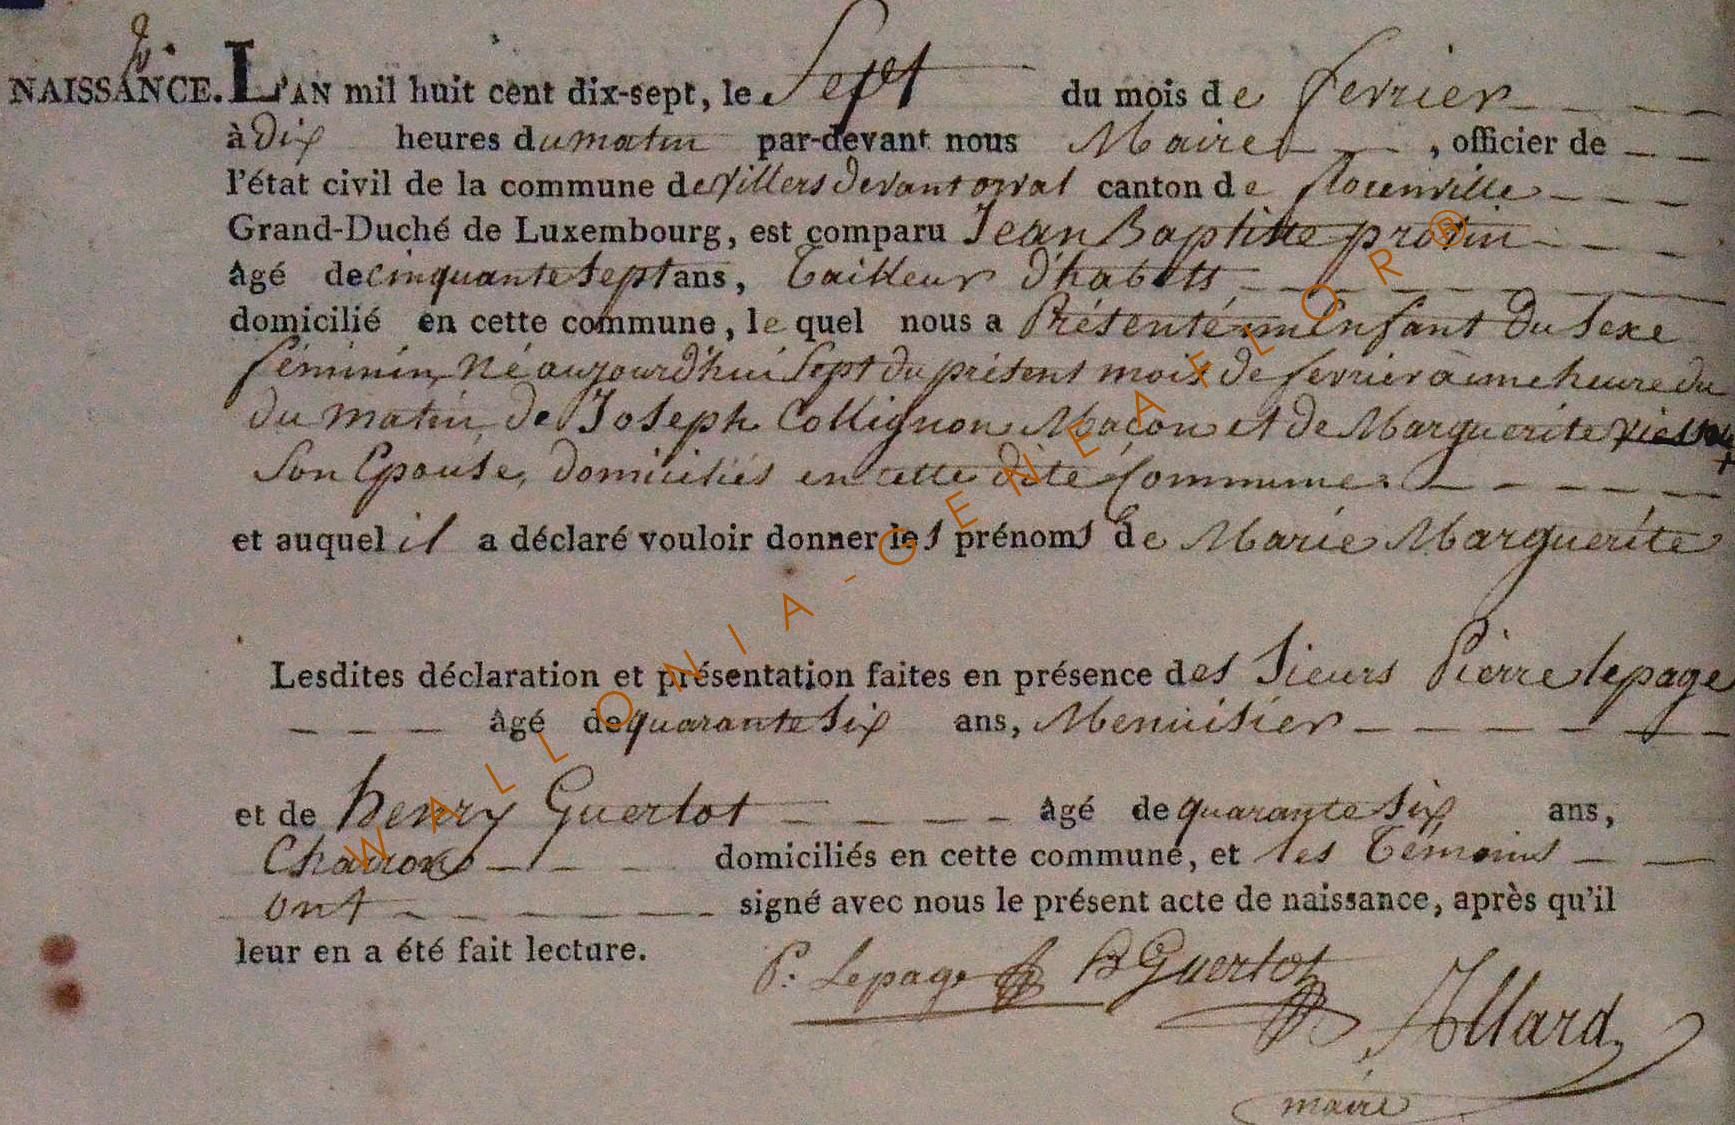 NAISSANCE. L'AN mil huit cent dix-sept, le Sept du mois de fevrier
à Dix heures du matin par-devant nous Maire , officier de
l'état civil de la commune de Villers devant orval canton de florenville
Grand-Duché de Luxembourg, est comparu Jean Baptiste protin
âgé de cinquante Sept ans, Tailleur D'habits
domicilié en cette commune, le quel nous a Présenté un Enfant Du Sexe
féminin, Né aujourd'hui Sept du présent mois De fevrier à une heure du
du matin De Joseph Collignon Macon et de Marguerite
Son Epouse, domiciliés en cette dite Commune.
et auquel il a déclaré vouloir donner les prénoms de Marie Marguerite
Lesdites déclaration et présentation faites en présence des Sieurs Pierre lepage
âgé de quarante Six ans, Menuisier
et de henry Guerlot âgé de quarante Six ans,
Charron domiciliés en cette commune, et les Témoins
ont signé avec nous le présent acte de naissance, après qu'il
leur en a été fait lecture.
P: Lepage H Guerlot
Allard
maire
WALLONIA-GENEAFLOR®